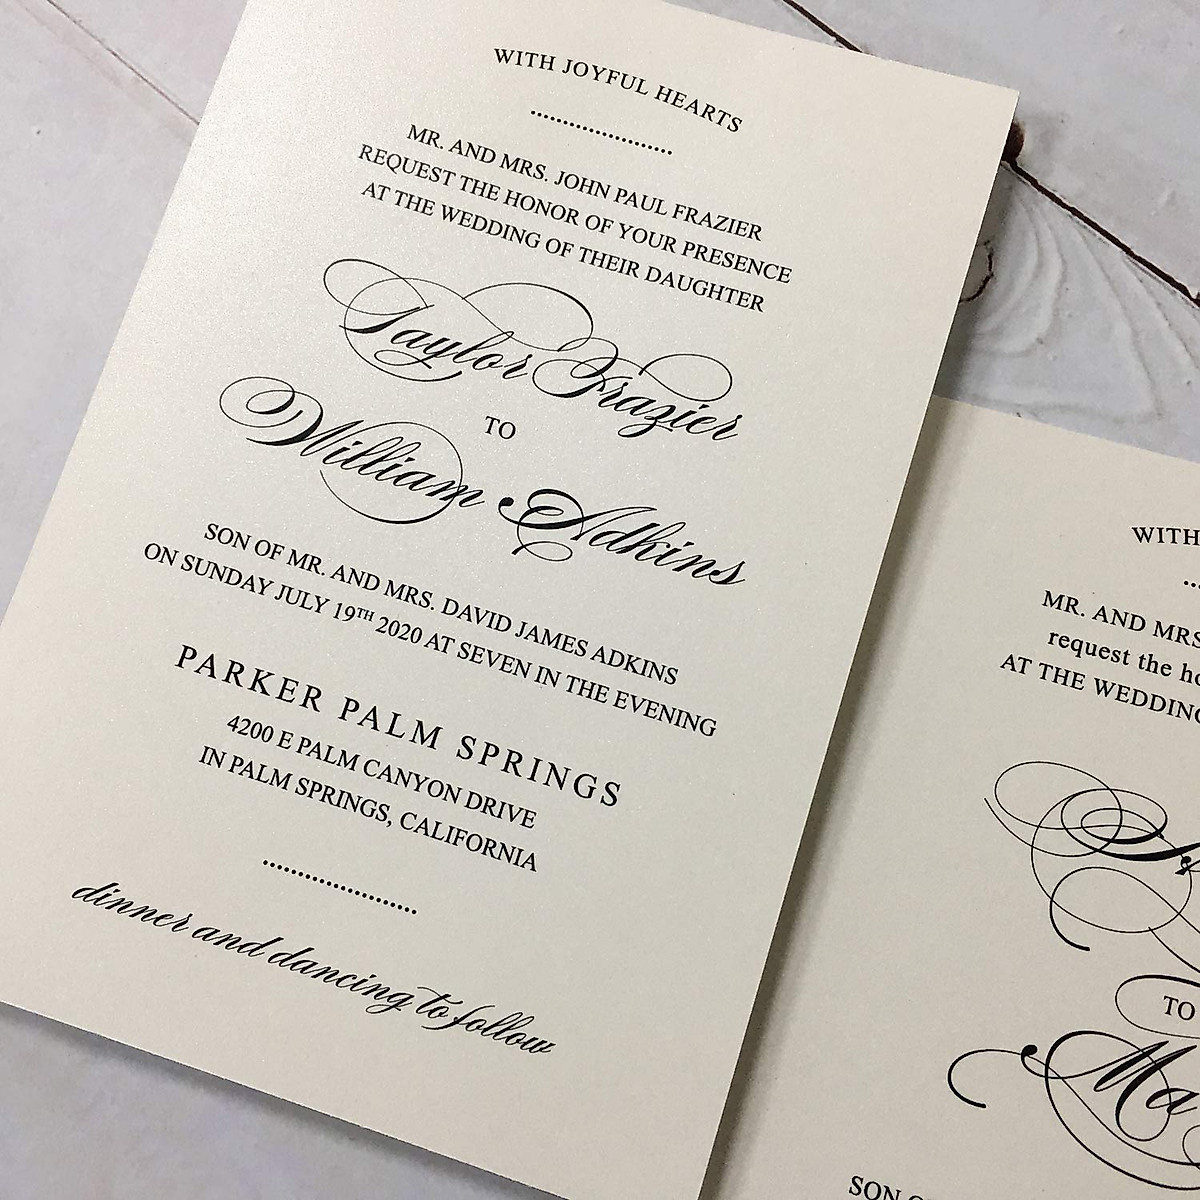 WITH JOYFUL HEARTS
MR. AND MRS. JOHN PAUL FRAZIER
REQUEST THE HONOR OF YOUR PRESENCE
AT THE WEDDING OF THEIR DAUGHTER
Taylor Frazier
TO
William Adkins
SON OF MR. AND MRS. DAVID JAMES ADKINS
ON SUNDAY JULY 19TH 2020 AT SEVEN IN THE EVENING
PARKER PALM SPRINGS
4200 E PALM CANYON DRIVE
IN PALM SPRINGS, CALIFORNIA
dinner and dancing to follow
WITH
MR. AND MRS.
request the ho
AT THE WEDDING
TO
Ma
SON O